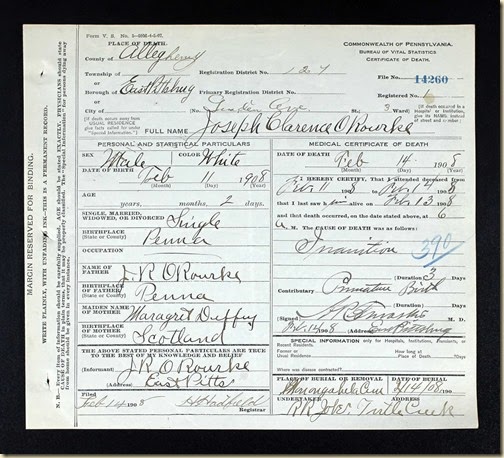 Form V. S. No. 5-
PLACE OF DEATH.
County of Allegheny
Township of
or
Borough of East Pittsburg
or
City of
Registration District No. 127
Primary Registration District No.
(No. Linden Ave St.; 3 Ward)
COMMONWEALTH OF PENNSYLVANIA.
BUREAU OF VITAL STATISTICS
CERTIFICATE OF DEATH.
FILE No. 14260
Registered No.
[If death occurred in a Hospital or Institution, give its NAME, instead of street and number.]
[If death occurs away from USUAL RESIDENCE give facts called for under "Special Information."]
FULL NAME Joseph Clarence O'Rourke
PERSONAL AND STATISTICAL PARTICULARS
SEX Male
COLOR White
DATE OF BIRTH Feb 11 1908
(Month) (Day) (Year)
AGE
years, months, 2 days
SINGLE, MARRIED, WIDOWED, OR DIVORCED Single
BIRTHPLACE (State or County) Penna
OCCUPATION
NAME OF FATHER J. R O'Rourke
BIRTHPLACE OF FATHER (State or County) Penna
MAIDEN NAME OF MOTHER Maragret Duffy
BIRTHPLACE OF MOTHER (State or County) Scotland
THE ABOVE STATED PERSONAL PARTICULARS ARE TRUE TO THE BEST OF MY KNOWLEDGE AND BELIEF
(Informant) J. R O'Rourke
(Address) East Pitts
Filed Feb 14 1908 H Hadfield
Registrar
MEDICAL CERTIFICATE OF DEATH
DATE OF DEATH Feb 14 1908
(Month) (Day) (Year)
I HEREBY CERTIFY, That I attended deceased from
Feb 11 1908 to Feb 14 1908
that I last saw him alive on Feb 13 1908
and that death occurred, on the date stated above, at 6
a. M. The CAUSE OF DEATH was as follows:
Inanition
390
(Duration) 3 Days
Contributory Premature Birth
(Duration) Days
(Signed) M. D.
Feb. 1908 (Address) East Pittsburg
SPECIAL INFORMATION only for Hospitals, Institutions, Transients, or Recent Residents.
Former or Usual Residence
How long at Place of Death? Days
Where was disease contracted?
PLACE OF BURIAL OR REMOVAL Monongahela Cem
DATE OF BURIAL 2/14/08 190
UNDERTAKER
ADDRESS Turtle Creek
MARGIN RESERVED FOR BINDING.
WRITE PLAINLY, WITH UNFADING INK—THIS IS A PERMANENT RECORD.
N. B.—Every item of information should be carefully supplied. AGE should be stated EXACTLY. PHYSICIANS should state CAUSE OF DEATH in plain terms, that it may be properly classified. The "Special Information" for persons dying away from home should be given in every instance.